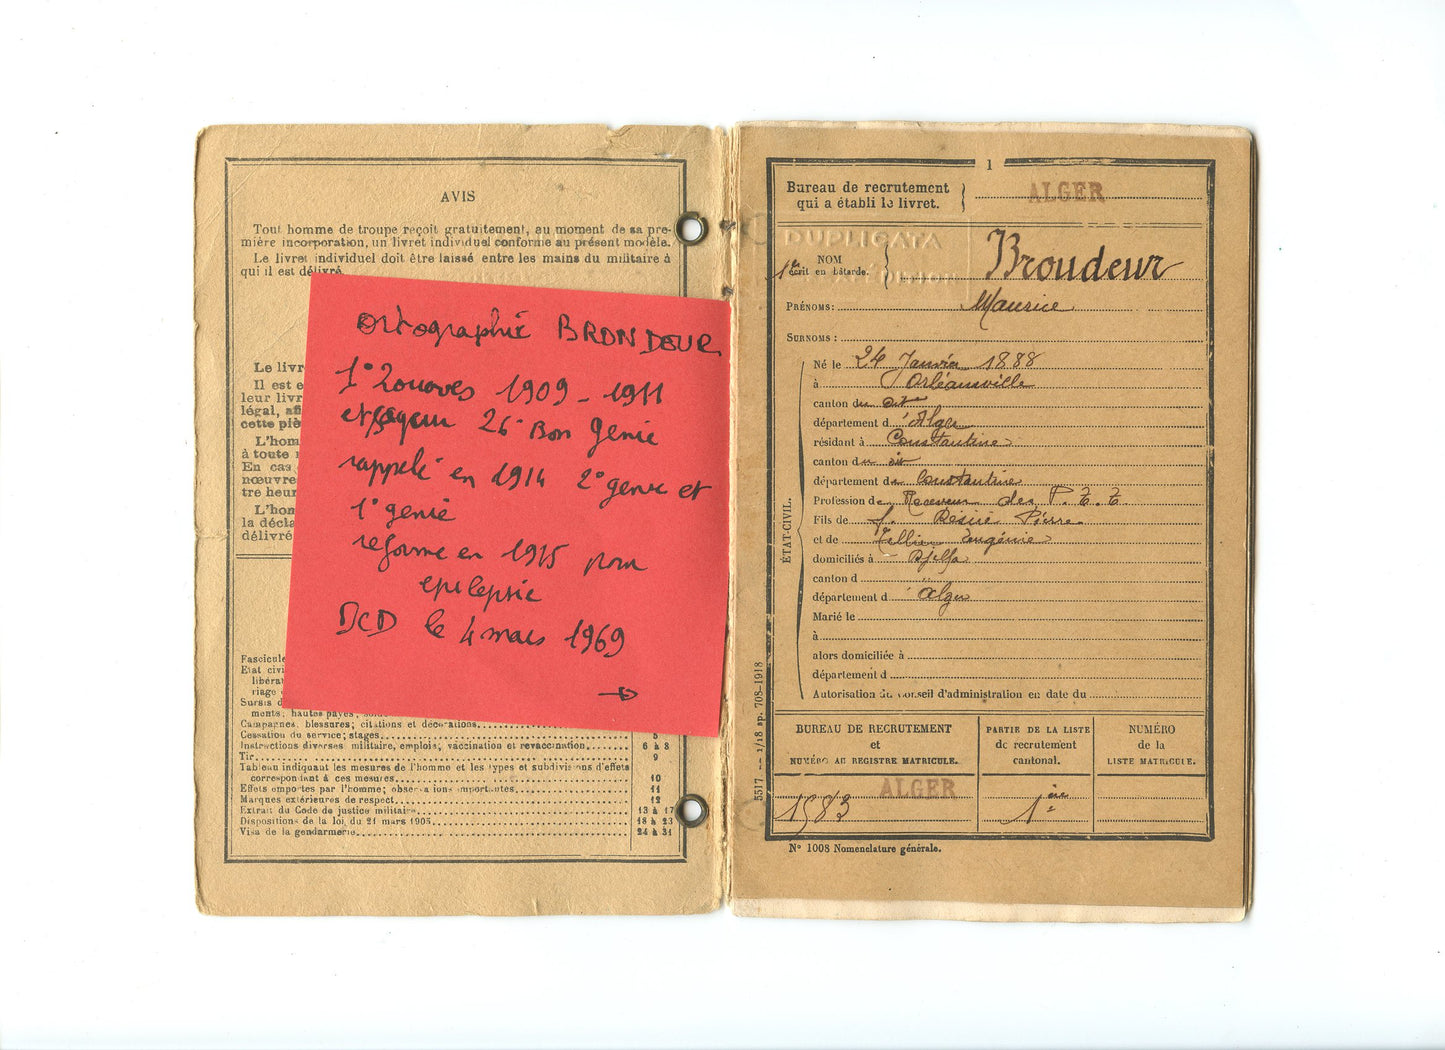 AVIS
Tout homme de troupe reçoit gratuitement, au moment de sa pre-
mière incorporation, un livret individuel conforme au présent modèle.
Le livret individuel doit être laissé entre les mains du militaire à
qui il est délivré.
Le livr
Il est e
leur livr
légal, af
cette piè
L'hom
à toute
En cas
nœuvre
tre heur
L'hom
la décla
délivré
ortographié BRONDEUR
1° Zouaves 1909 - 1911
et 26° Bon Genie
rappelé en 1914 2° genie et
1° genie
reforme en 1915 pour
epilepsie
DCD le 4 mars 1969
→
Fascicule
Etat civi
libérat
riage
Sursis d
ments; hautes payes;
Campagnes, blessures; citations et décorations
Cessation du service; stages 5
Instructions diverses militaire, emplois; vaccination et revaccination 6 à 8
Tir 9
Tableau indiquant les mesures de l'homme et les types et subdivisions d'effets
correspondant à ces mesures 10
Effets emportés par l'homme; observations importantes 11
Marques extérieures de respect 12
Extrait du Code de justice militaire 13 à 17
Dispositions de la loi du 21 mars 1905 18 à 23
Visa de la gendarmerie 24 à 31
1
Bureau de recrutement
qui a établi le livret. ALGER
DUPLICATA
NOM
écrit en bâtarde. Broudeur
PRÉNOMS: Maurice
SURNOMS:
ÉTAT-CIVIL.
Né le 24 Janvier 1888
à Orléansville
canton du dit
département d'Alger
résidant à Constantine
canton du dit
département de Constantine
Profession de Receveur des P.T.T.
Fils de f. Désiré Pierre
et de Tellier Eugénie
domiciliés à Djelfa
canton d
département d'Alger
Marié le
à
alors domiciliée à
département d
Autorisation du Conseil d'administration en date du
BUREAU DE RECRUTEMENT
et
NUMÉRO AU REGISTRE MATRICULE.
ALGER
1583
PARTIE DE LA LISTE
de recrutement
cantonal.
1ère
NUMÉRO
de la
LISTE MATRICULE.
5517 — 1/18 sp. 708-1918
N° 1008 Nomenclature générale.